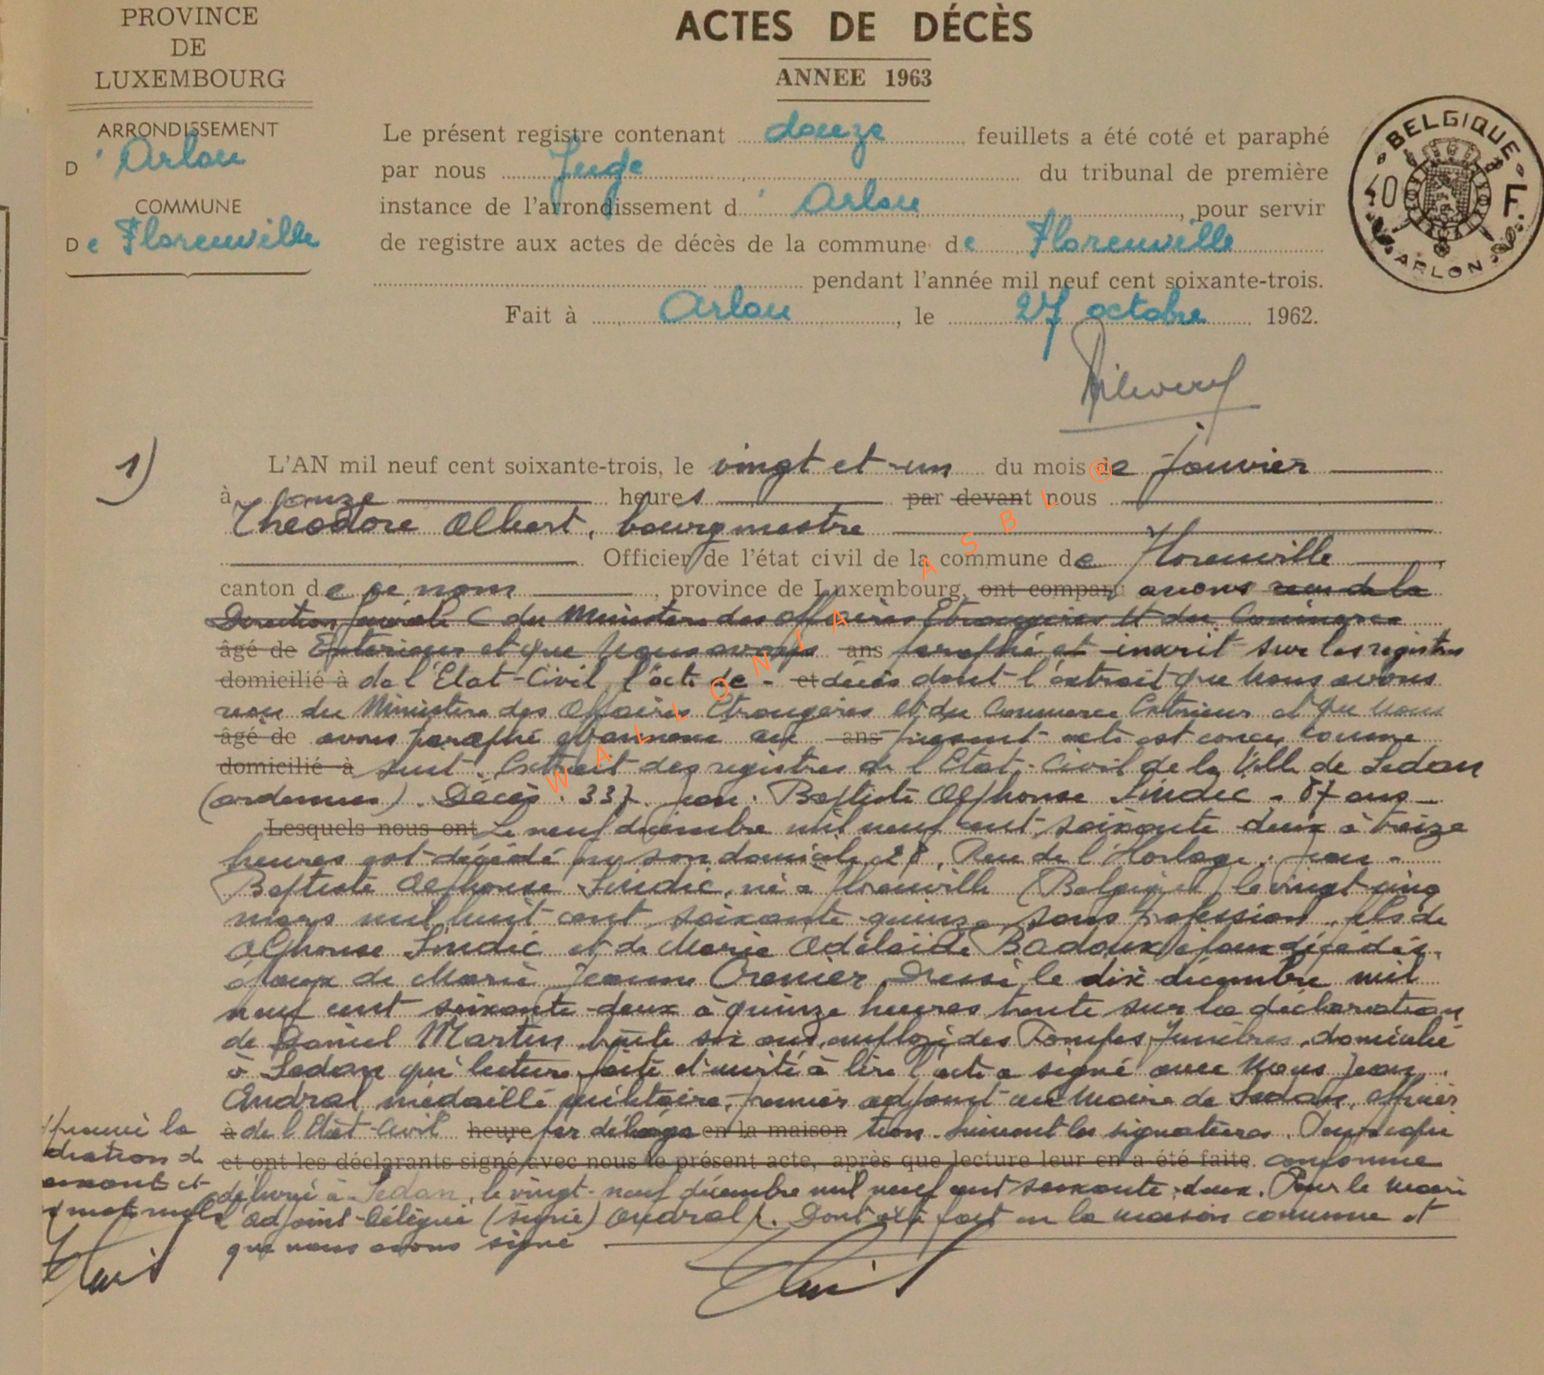 PROVINCE
DE
LUXEMBOURG
ARRONDISSEMENT
D'Arlon
COMMUNE
De Florenville
ACTES DE DÉCÈS
ANNEE 1963
Le présent registre contenant douze feuillets a été coté et paraphé
par nous Juge du tribunal de première
instance de l'arrondissement d'Arlon, pour servir
de registre aux actes de décès de la commune de Florenville
pendant l'année mil neuf cent soixante-trois.
Fait à Arlon, le 27 octobre 1962.
BELGIQUE
40 F
ARLON
1)
L'AN mil neuf cent soixante-trois, le vingt et un du mois de janvier
à onze heures par devant nous
Théodore Albert, bourgmestre
Officier de l'état civil de la commune de Florenville
canton de ce nom, province de Luxembourg, ont comparu avons reçu de la
Direction C du Ministère des Affaires Etrangères et du Commerce
âgé de Extérieur et que nous avons ans paraphé et inscrit sur les registres
domicilié à de l'Etat-Civil, l'acte de - et décès dont l'extrait que nous avons
reçu du Ministère des Affaires Etrangères et du Commerce Extérieur et que nous
âgé de avons paraphé et annexé au ans présent acte est conçu comme
domicilié à suit : Extrait des registres de l'Etat-Civil de la Ville de Sedan
(Ardennes). Décès. 337. Jean-Baptiste Alphonse Sindic - 87 ans -
Lesquels nous ont Le neuf décembre mil neuf cent soixante deux à treize
heures est décédé en son domicile, 28, Rue de l'Horloge, Jean-
Baptiste Alphonse Sindic, né à Florenville (Belgique) le vingt cinq
mars mil huit cent soixante-quinze, sans profession, fils de
Alphonse Sindic et de Marie Adélaïde Badoux, époux décédés,
époux de Marie Jeanne Cremer. Dressé le dix décembre mil
neuf cent soixante-deux à quinze heures trente sur la déclaration
de Daniel Martin, trente six ans, employé des Pompes Funèbres, domicilié
à Sedan qui lecture faite et invité à lire l'acte a signé avec Nous Jean
Andral, médaillé militaire, premier adjoint au Maire de Sedan, officier
à de l'Etat-Civil heure par déléga en la maison tion. suivent les signatures. Pour copie
et ont les déclarants signé avec nous le présent acte, après que lecture leur en a été faite. conforme
délivré à Sedan, le vingt-neuf décembre mil neuf cent soixante-deux. Pour le Maire
l'adjoint-délégué (signé) Andral. Dont acte fait en la maison commune et
que nous avons signé
WALLONIA ASBL ©